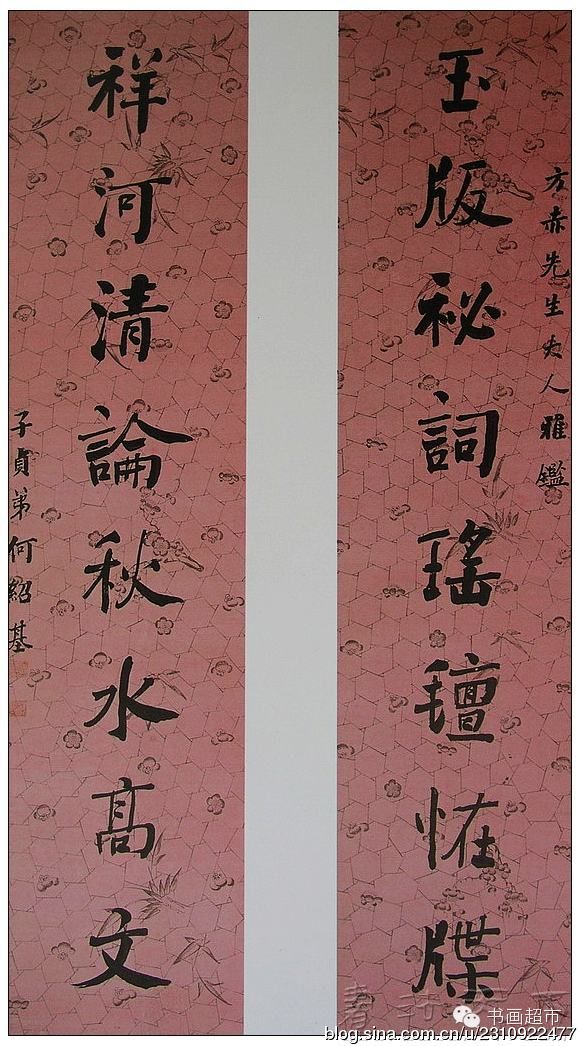 方赤先生大人雅鑑
玉版祕詞瑤壇恠牒
祥河清論秋水髙文
子貞弟何紹基
书画超市
blog.sina.com.cn/u/2310922477